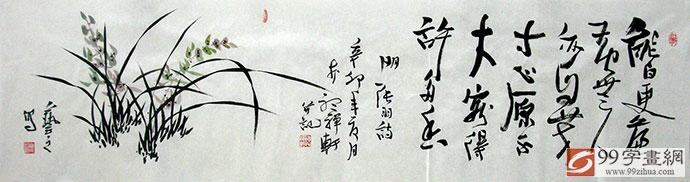 能白更兼
黄無人
亦自芳
寸心原不
大容得
許多香
明張羽詩
辛卯年夏月
禪軒
99字畫網
www.99zihua.com